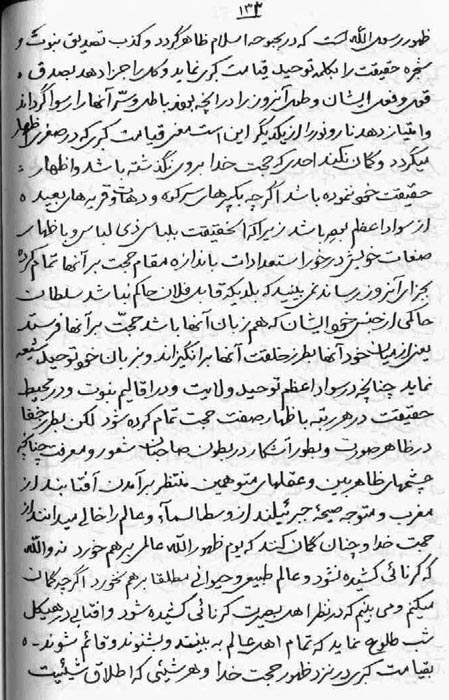 ۱۳۳
ظهور رسول الله است که در بحبوحه اسلام ظاهر گردد و کذب تصدیق نبوت و
شجره حقیقت را بکلمه توحید قیامت کبری نماید و کل را جزا دهد بصدق
قول و فعل ایشان و طی آنروز را در آنچه بوده باطن و سرّ آنها را رسوا گرداند
و امتیاز دهد نار و نور را از یکدیگر این است معنی قیامت کبری که در صغری اظهار
میگردد و گمان نکند احدی که حجت خدا بر وی نگذشته باشد و اظهار
حقیقت خود ننموده باشد اگرچه بکپرهای سرکوه و دهات و قریه های بعیده
از سواد اعظم بوده باشد زیرا که الحقیقت بلباسی ذی لباسی و باظهار
صفات خویش در خور استعدادات باندازه مقام حجت بر آنها تمام کرده
بجزای آنروز رساند نمی بینید که بلدیکه قابل فلان حاکم نباشد سلطان
حاکمی از جنس خود ایشان که هم زبان آنها باشد حجّت بر آنها فرستد
یعنی از میان خود آنها بطرز خلقت آنها برانگیزاند و بزبان خود توحید
نماید چنانچه در سواد اعظم توحید و ولایت و در اقالیم نبوت و در محیط
حقیقت در هر رتبه باظهار صفت حجت تمام کرده شود لکن بطرز خفا
در ظاهر صورت و بطور آشکار در بطون صاحبان شعور و معرفت چنانچه
چشمهای ظاهر بین و عقلهای متوهمین منتظر برآمدن آفتابند از
مغرب و متوجه صیحهٔ جبرئیلند از وسط السمآء و عالم را خالی میدانند از
حجت خدا و چنان گمان کنند که یوم ظهور الله عالمی برهم خورد نه والله
که کرنائی کشیده نشود و عالم طبیعی و حیوانی مطلقا برهم نخورد اگرچه گمان
میکنم و می بینم که در نظر اهل بصیرت کرنائی کشیده شود و افتابی در هیکل
شب طلوع نماید که تمام اهل عالم به بینند و بشنوند و قائم شوند
بقیامت کبری در نزد ظهور حجت خدا و هر شیئی که اطلاق شیئیت